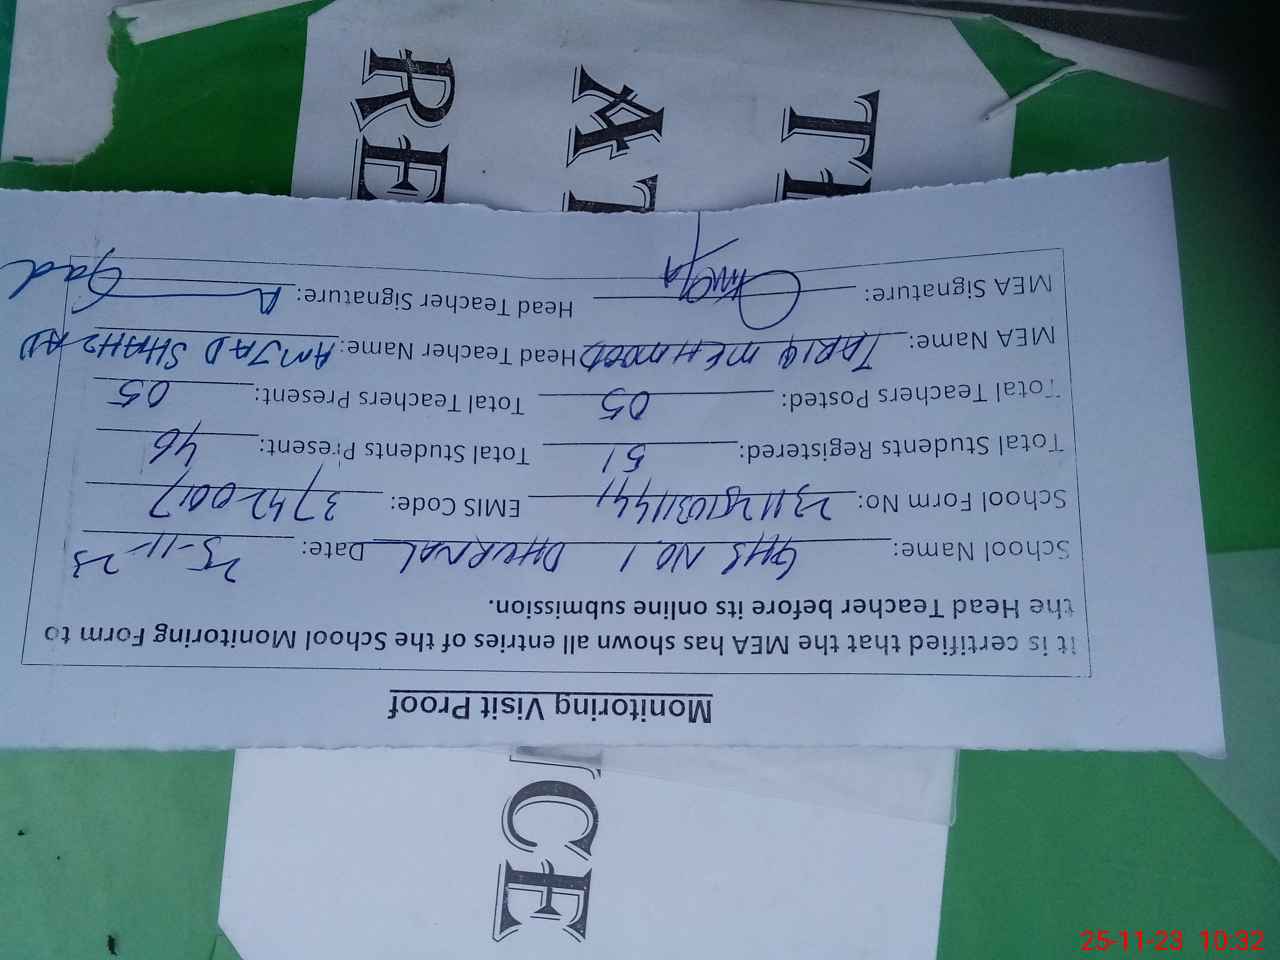 Monitoring Visit Proof
It is certified that the MEA has shown all entries of the School Monitoring Form to
the Head Teacher before its online submission.
School Name: GHS NO.1 DHURNAL Date: 25-11-23
School Form No: EMIS Code: 37420017
Total Students Registered: 51 Total Students Present: 46
Total Teachers Posted: 05 Total Teachers Present: 05
MEA Name: TARIQ MEHMOOD Head Teacher Name: AMJAD SHAHZAD
MEA Signature: Head Teacher Signature:
RE
AT
TE
NCE
25-11-23 10:32